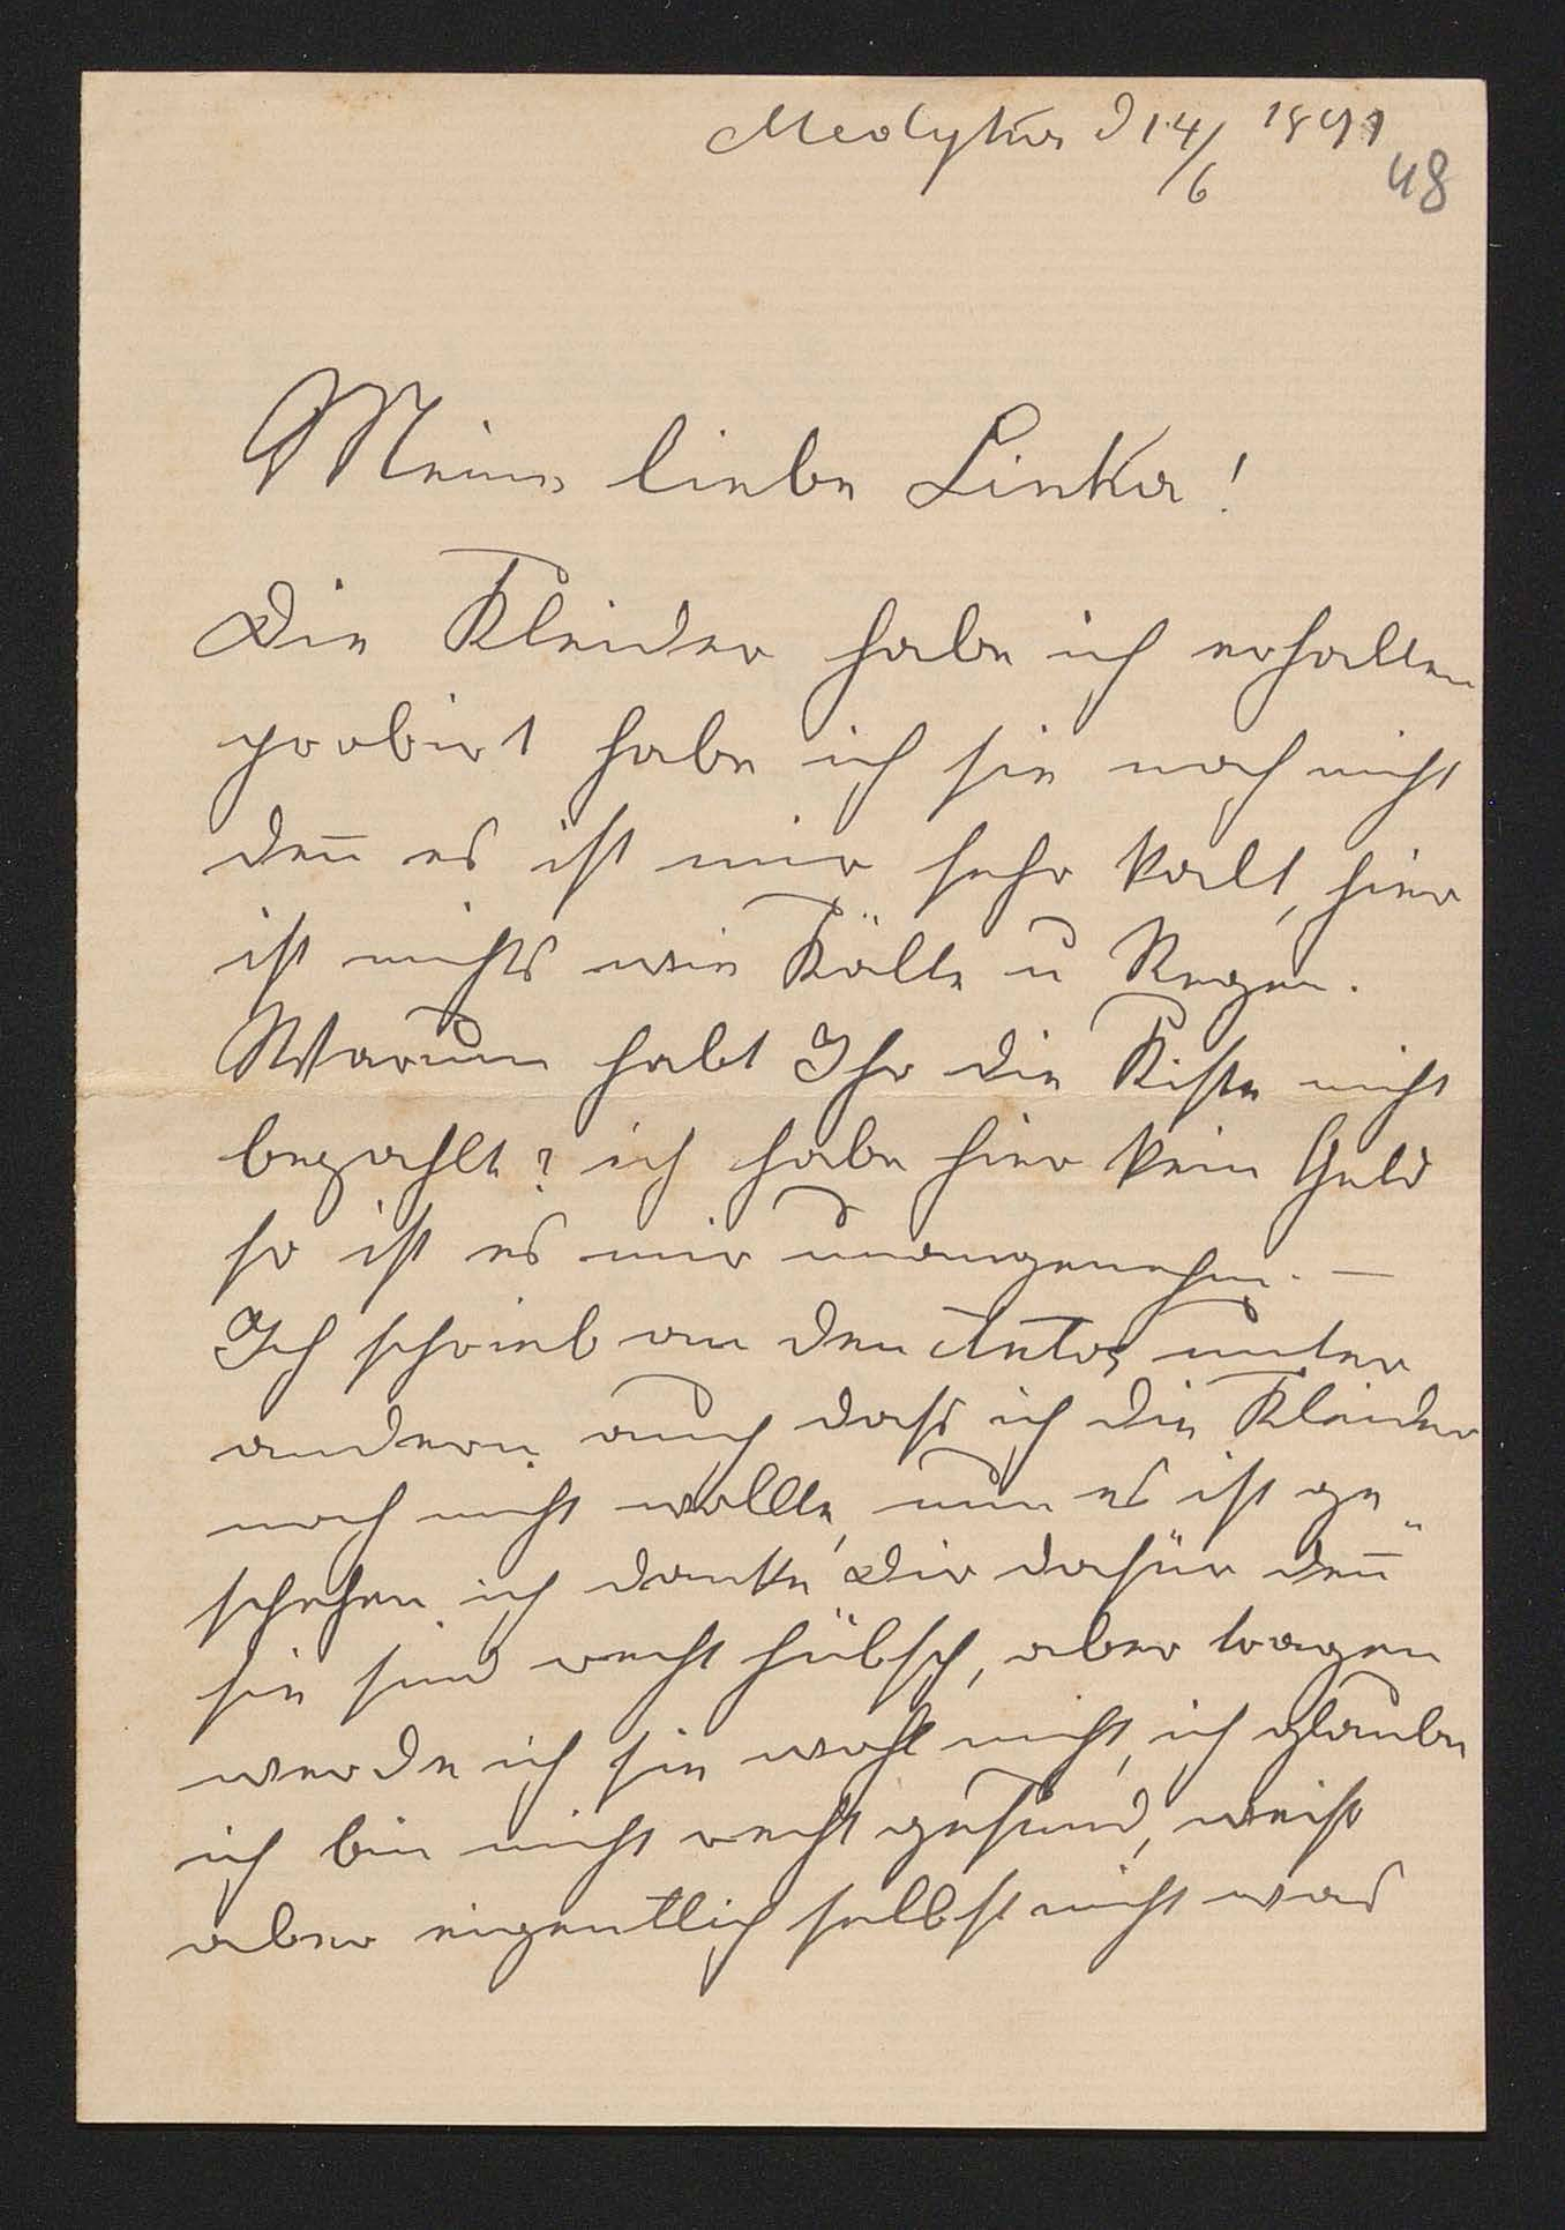 Medyka d 14/6 1891
48
Meine liebe Linka!
Die Kleider habe ich erhalten
probirt habe ich sie noch nicht
den̄ es ist mir sehr kalt, hier
ist nichts wie Kälte u Regen.
Warum habt Ihr die Kiste nicht
bezahlt? ich habe hier kein Geld
so ist es mir unangenehm. —
Ich schrieb an den Antos unter
andern auch dass ich die Kleider
noch nicht wollte, nun es ist ge„
schehen ich danke Dir dafür den̄
sie sind recht hübsch, aber tragen
werde ich sie wohl nicht, ich glaube
ich bin nicht recht gesund, weiss
aber eigentlich selbst nicht was